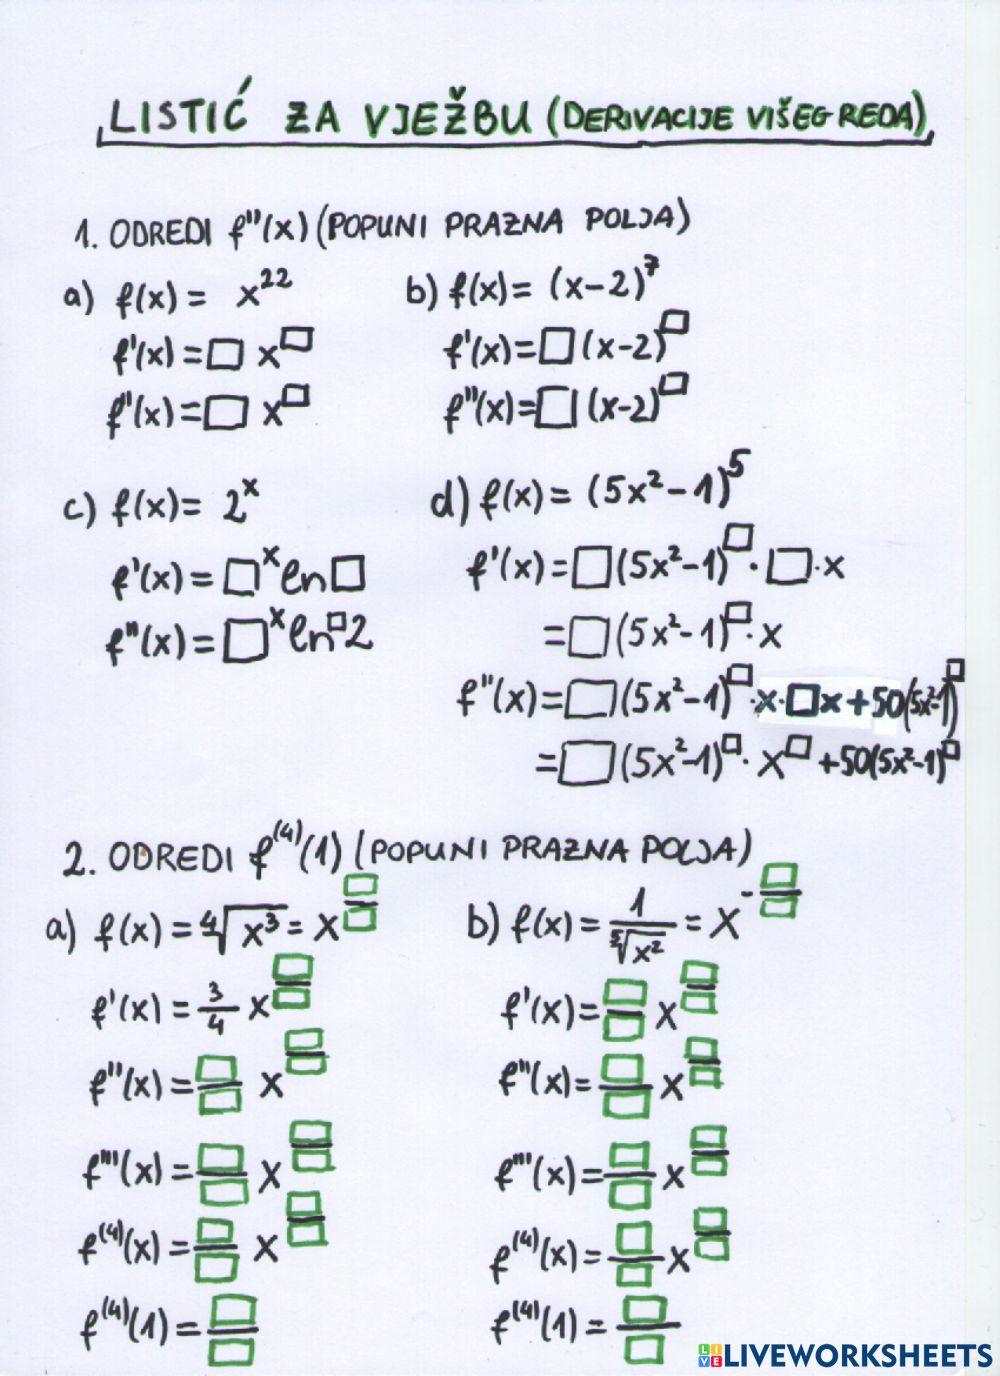 LISTIĆ ZA VJEŽBU (DERIVACIJE VIŠEG REDA)
1. ODREDI f''(x) (POPUNI PRAZNA POLJA)
a) f(x) = x^22
f'(x) = □ x^□
f''(x) = □ x^□
b) f(x) = (x-2)^7
f'(x) = □ (x-2)^□
f''(x) = □ (x-2)^□
c) f(x) = 2^x
f'(x) = □^x ln □
f''(x) = □^x ln^□ 2
d) f(x) = (5x²-1)^5
f'(x) = □ (5x²-1)^□ · □ · x
= □ (5x²-1)^□ · x
f''(x) = □ (5x²-1)^□ · x · □x + 50(5x²-1)^□
= □ (5x²-1)^□ · x^□ + 50(5x²-1)^□
2. ODREDI f^(4)(1) (POPUNI PRAZNA POLJA)
a) f(x) = ⁴√x³ = x^(□/□)
f'(x) = 3/4 x^(□/□)
f''(x) = □/□ x^(□/□)
f'''(x) = □/□ x^(□/□)
f^(4)(x) = □/□ x^(□/□)
f^(4)(1) = □/□
b) f(x) = 1/⁵√x² = x^(-□/□)
f'(x) = □/□ x^(□/□)
f''(x) = □/□ x^(□/□)
f'''(x) = □/□ x^(□/□)
f^(4)(x) = □/□ x^(□/□)
f^(4)(1) = □/□
LIVEWORKSHEETS